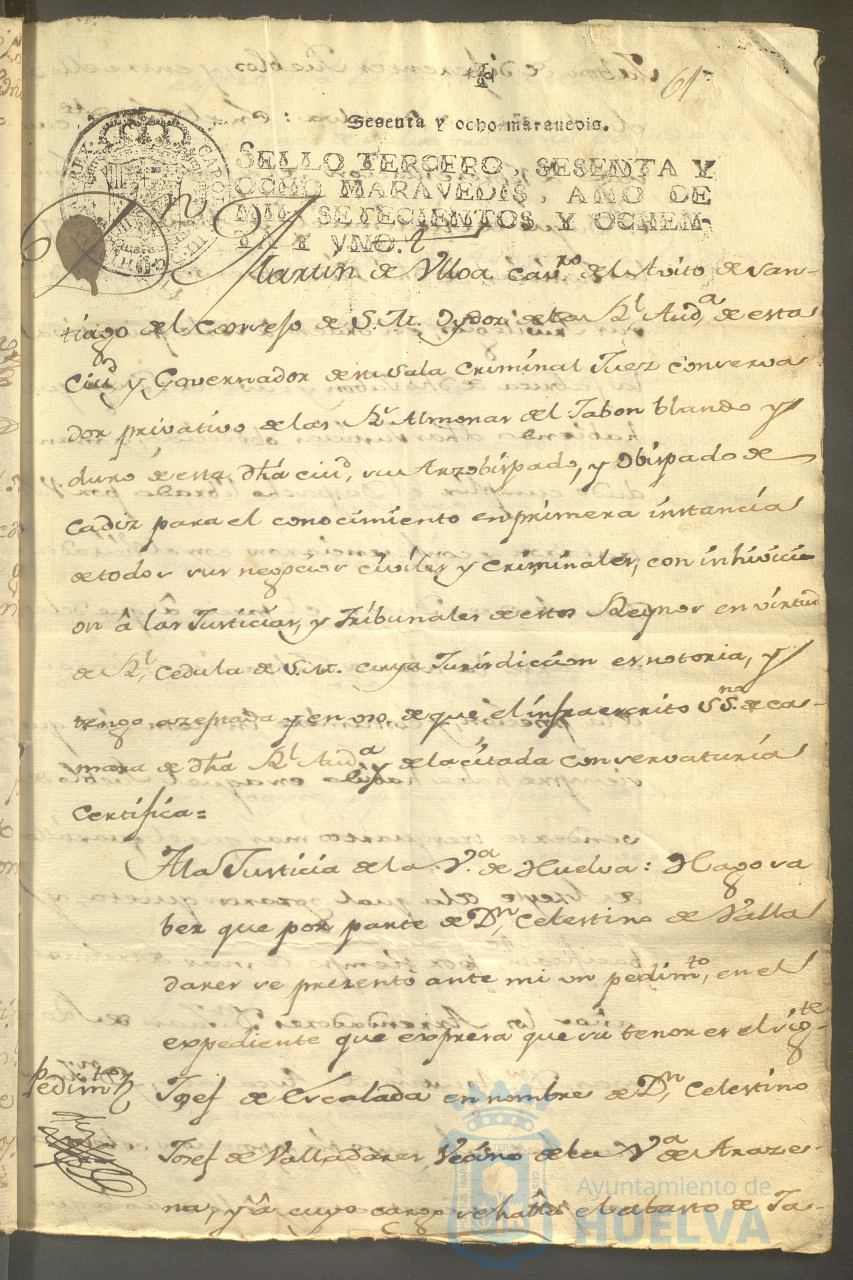 61
Sesenta y ocho maravedis.
SELLO TERCERO, SESENTA Y
OCHO MARAVEDIS, AÑO DE
MIL SETECIENTOS Y OCHEN-
TA Y VNO.
Dn Martin de Ulloa Cavro del Avito de San-
tiago del Consejo de S. M. Oydor de la Rl Auda de esta
Ciud y Governador de su Sala Criminal Juez Conserva
dor privativo de las Rs Almonas del Jabon blando y
duro de esta dha ciud, su Arzobispado, y Obispado de
Cadiz para el conocimiento en primera instancia
de todos sus negocios civiles y criminales, con inhivici
on â las Justicias, y Tribunales de estos Reynos en virtud
de Rl Cedula de S. M. cuya Jurisdiccion es notoria, y
tengo azeptada y en uso de que el infraescrito SSno de Ca-
mara de dha Rl Auda y de la citada conservaturia
Certifica=
A la Justicia de la Va de Huelva: Hago sa
ber que por parte de Dn Celestino de Valla
dares se prezentó ante mi un pedimto, en el
expediente que expresa que su tenor es el sigte
Pedimto Josef de Escalada en nombre de Dn Celestino
Josef de Valladares, Vecino de la Va de Araze-
na, y â cuyo cargo se halla el abasto de Ja-
Ayuntamiento de
HUELVA